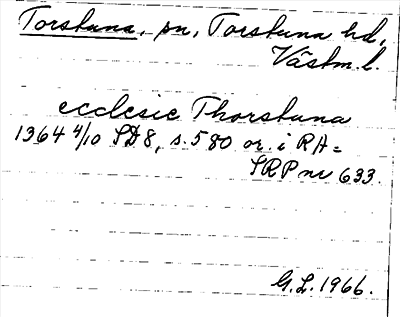 Torstuna, sn, Torstuna hd,
Västm.l.
ecclesie Thorstuna
1364 4/10 SD8, s.580 or. i RA =
SRP nr 633.
G.L.1966.